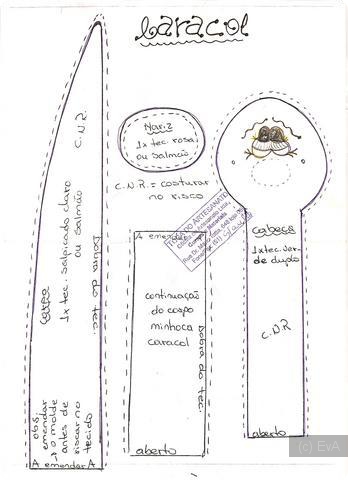 caracol
C.N.R.
corpo
1x tec. salpicado claro
ou salmão
Dobra do tec.
obs:
emendar
o molde
antes de
riscar no
tecido
A emendar A
Nariz
1x tec. rosa
ou salmão
C.N.R = costurar
no risco
A emendar
continuação
do corpo
minhoca
caracol
Dobra do tec.
aberto
cabeça
1x tec. ver
de duplo
C.D.R
aberto
DO ARTESANATO
(c) EvA